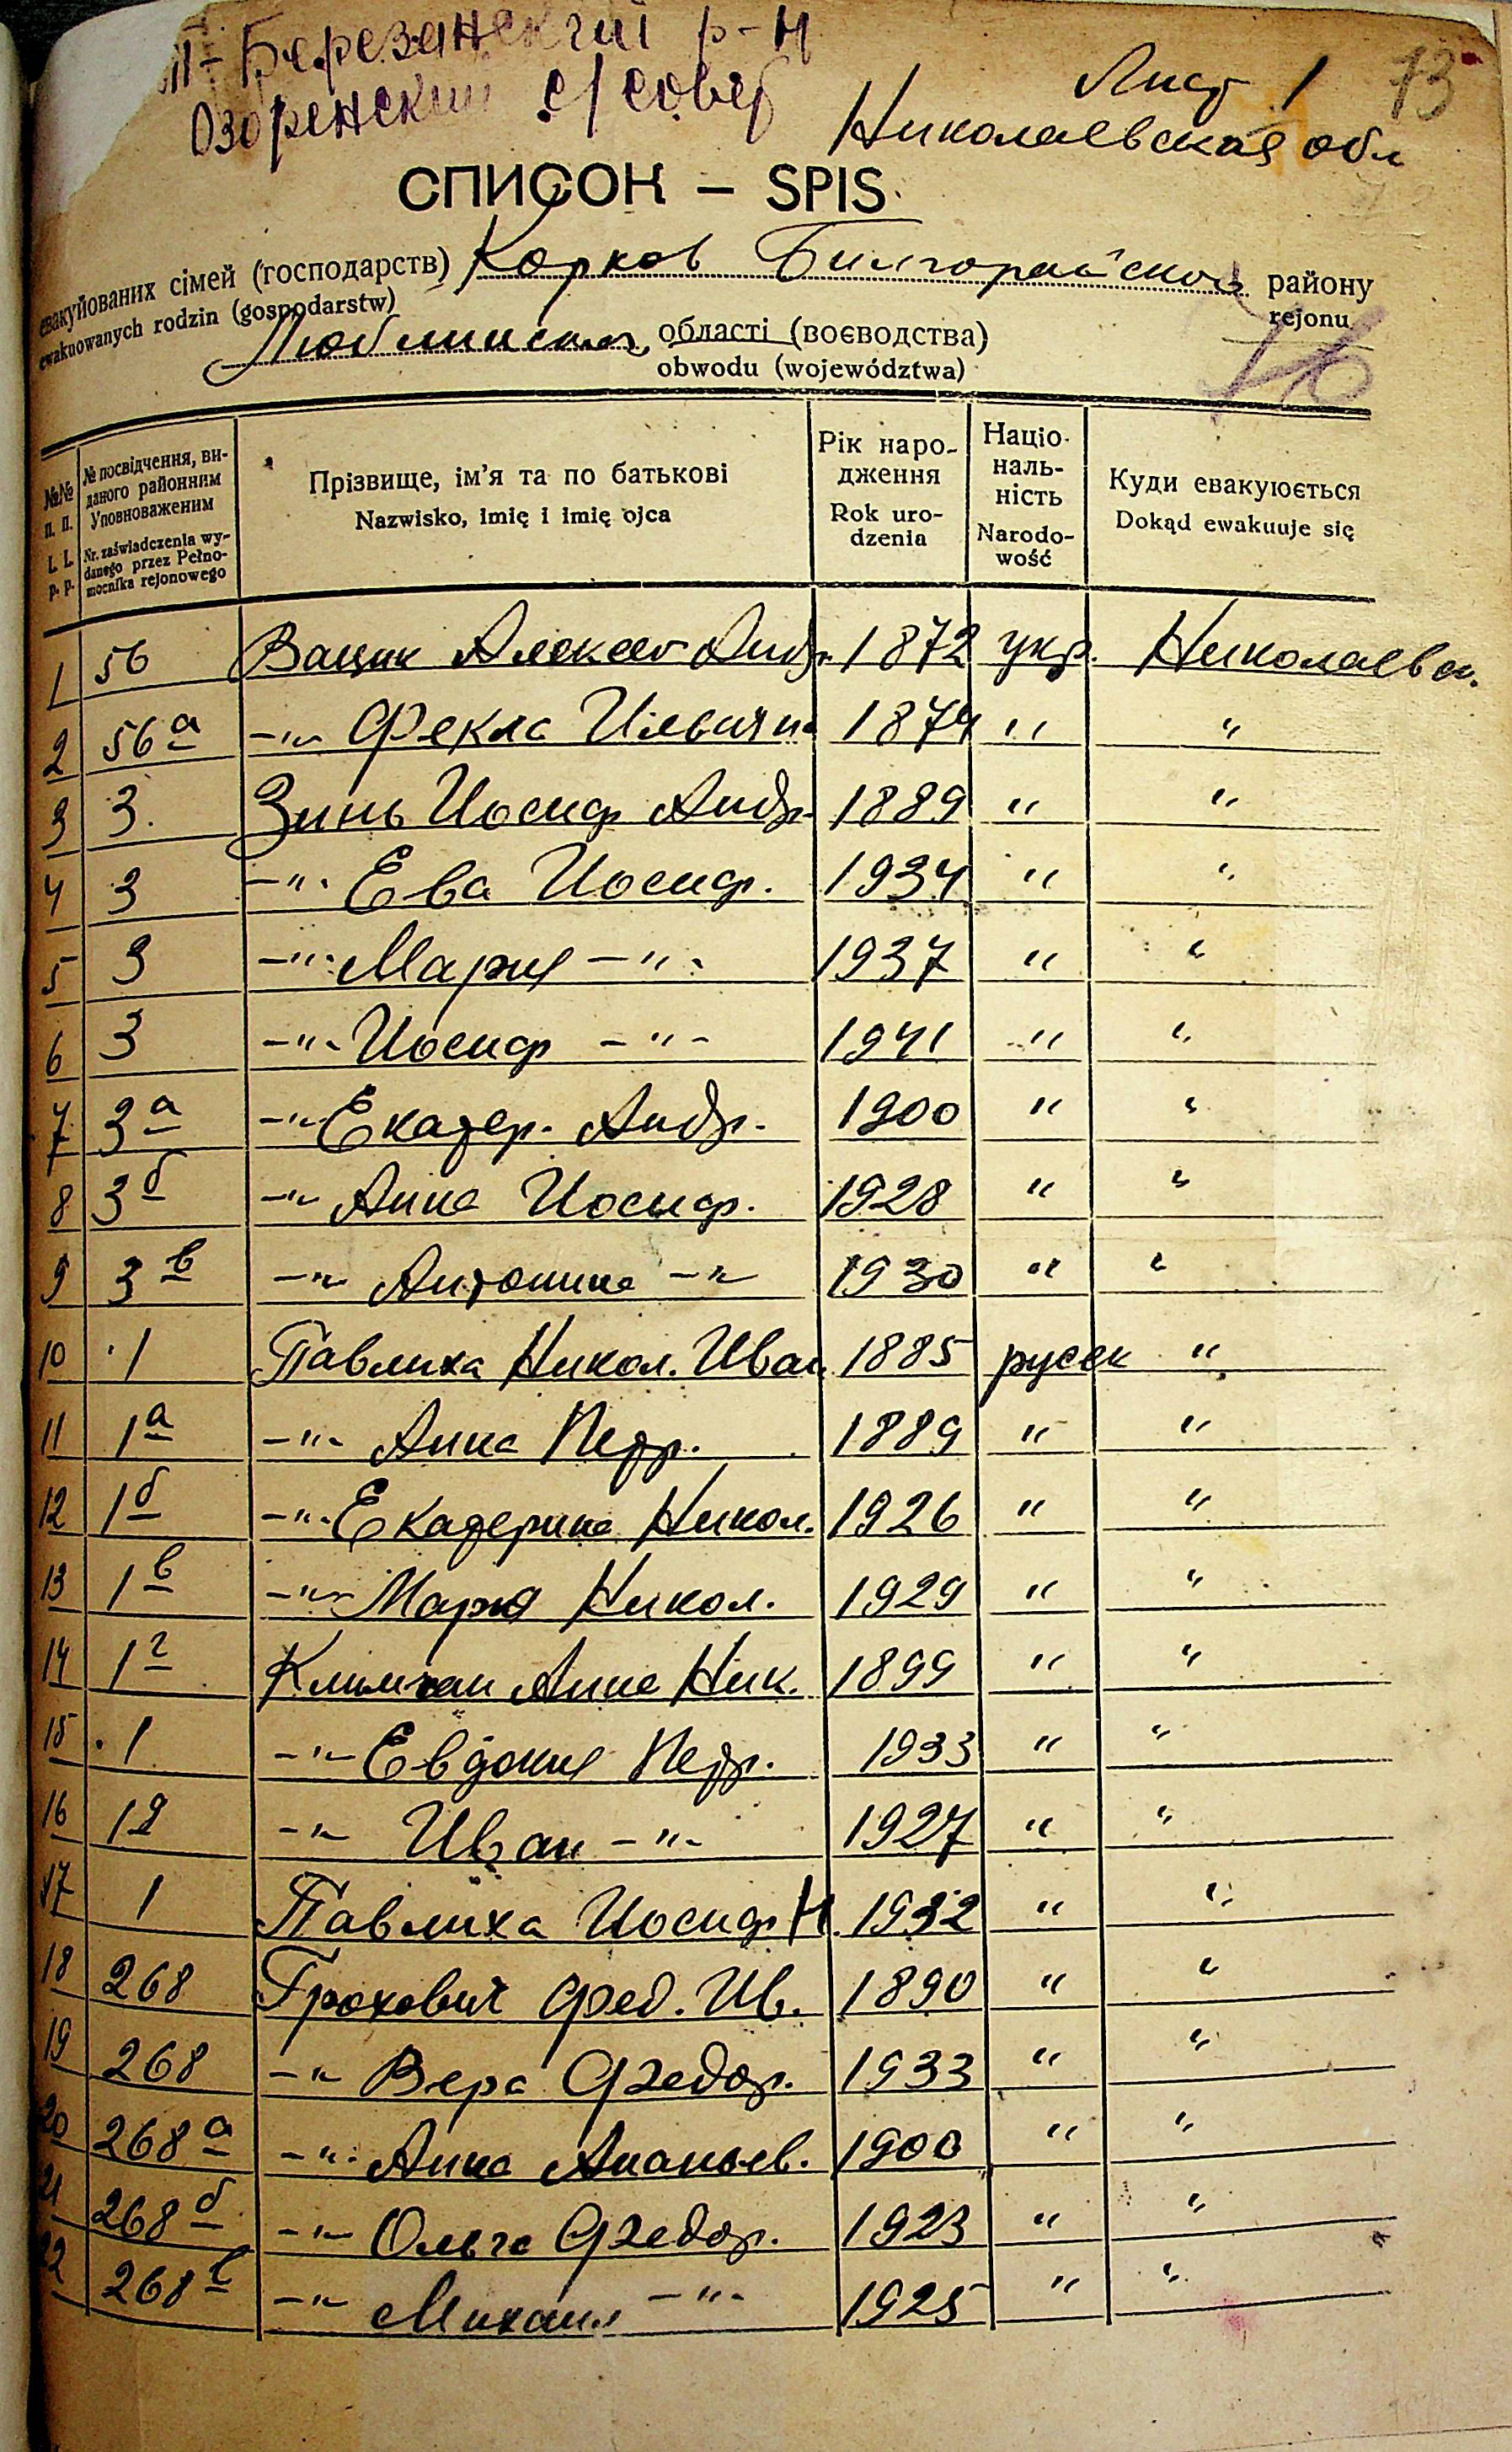 Березанский р-н
Озоренский с/совет
Лист 1
73
Николаевская обл
СПИСОК – SPIS
евакуйованих сімей (господарств) Корков Билгорайского району
ewakuowanych rodzin (gospodarstw) rejonu
Люблинской області (воєводства)
obwodu (województwa)
№№ п. п. L. L. p. p.
№ посвідчення, виданого районним Уповноваженим Nr. zaświadczenia wydanego przez Pełnomocnika rejonowego
Прізвище, ім'я та по батькові Nazwisko, imię i imię ojca
Рік народження Rok urodzenia
Національність Narodowość
Куди евакуюється Dokąd ewakuuje się
1 56 Вацик Алексей Андр. 1872 укр. Николаевск.
2 56а -"- Фекла Ильинич 1874 " "
3 3. Зинь Иосиф Андр. 1889 " "
4 3 -"- Ева Иосиф. 1934 " "
5 3 -"- Мария -"- 1937 " "
6 3 -"- Иосиф -"- 1941 " "
7 3а -"- Екатер. Андр. 1900 " "
8 3б -"- Анна Иосиф. 1928 " "
9 3в -"- Антонина -"- 1930 " "
10 1 Павлиха Никол. Иван 1885 русск "
11 1а -"- Анна Петр. 1889 " "
12 1б -"- Екатерина Никол. 1926 " "
13 1в -"- Мария Никол. 1929 " "
14 1г Климчан Анна Ник. 1899 " "
15 1 -"- Евдокия Петр. 1933 " "
16 1д -"- Иван -"- 1927 " "
17 1 Павлиха Иосиф Н. 1932 " "
18 268 Грохович Фед. Ив. 1890 " "
19 268 -"- Вера Федор. 1933 " "
20 268а -"- Анна Ананьев. 1900 " "
21 268б -"- Ольга Федор. 1923 " "
22 268в -"- Михаил -"- 1925 " "